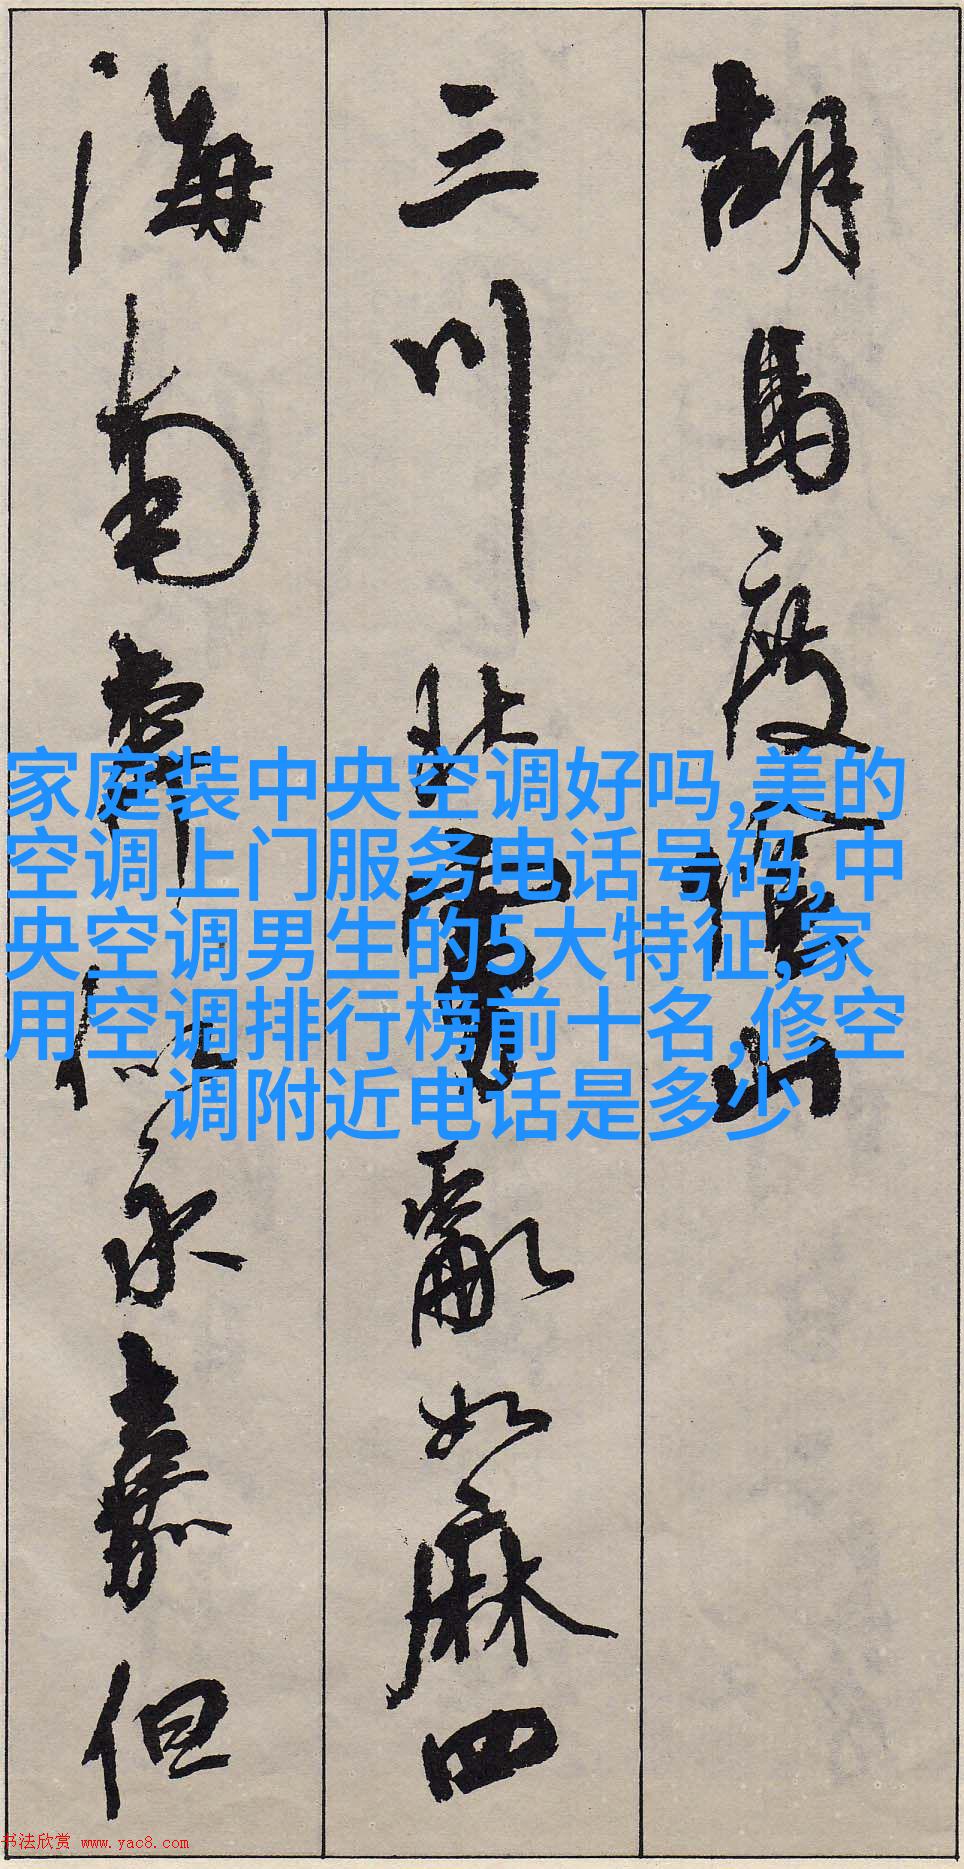 胡馬度陰山
三川北虜亂如麻四
海南奔似永嘉但
家庭装中央空调好吗,美的
空调上门服务电话号码,中
央空调男生的5大特征,家
用空调排行榜前十名,修空
调附近电话是多少
书法欣赏 www.yac8.com